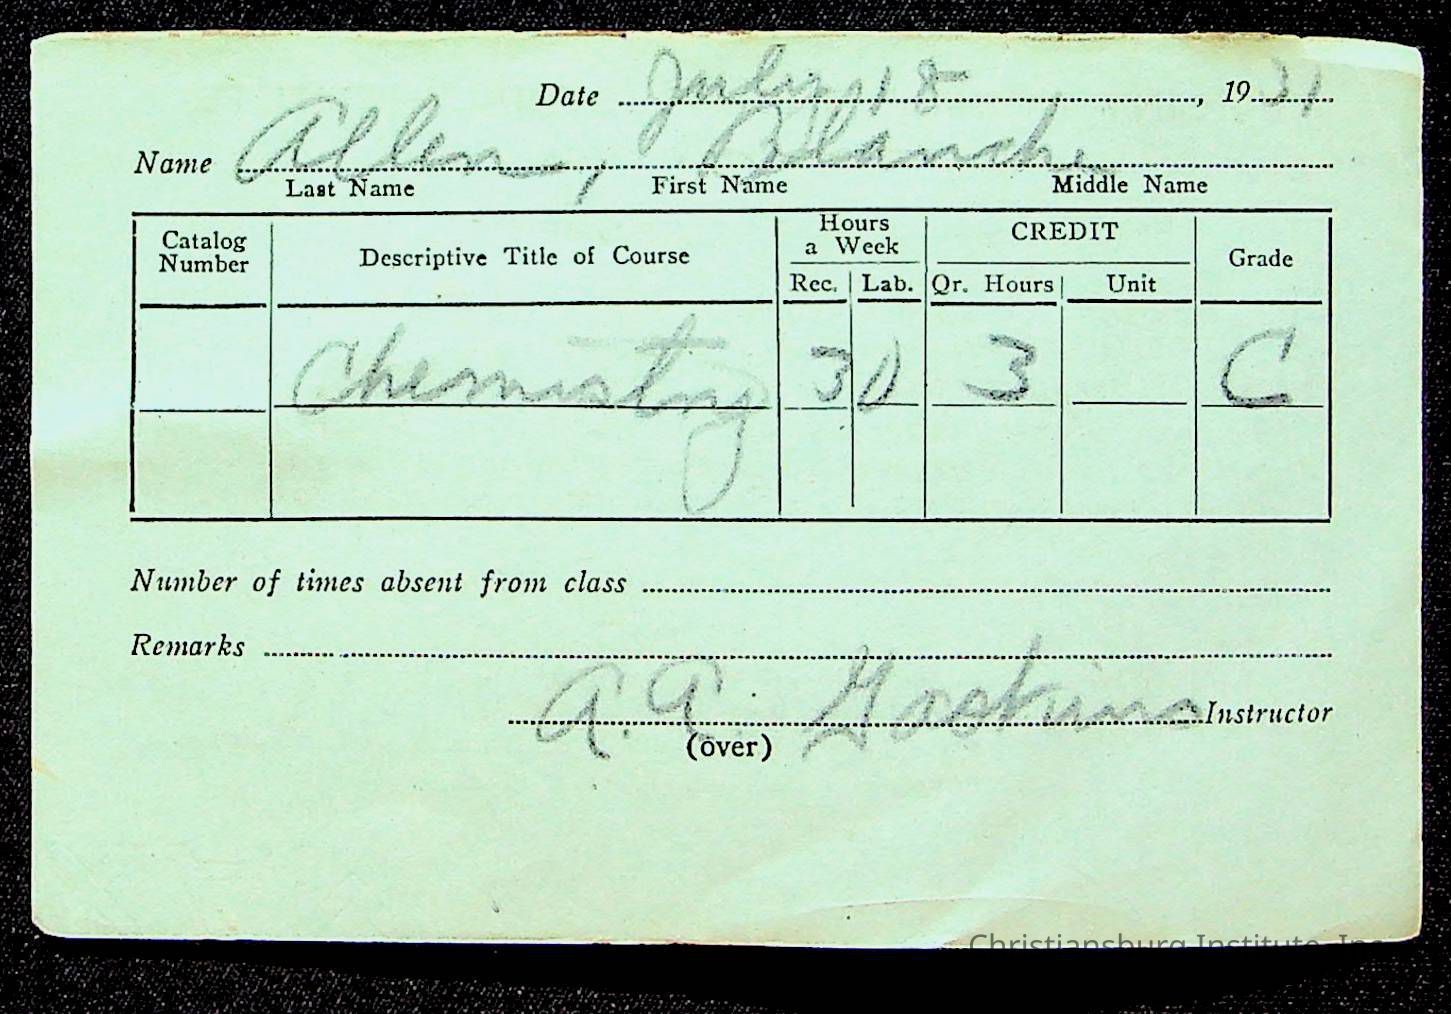 Date July 18, 1931
Name Allen, Blanche
Last Name First Name Middle Name
Catalog Number Descriptive Title of Course Hours a Week CREDIT Grade
Rec. Lab. Qr. Hours Unit
Chemistry 3 0 3 C
Number of times absent from class
Remarks
A. A. Hoskins Instructor
(over)
Christiansburg Institute, Inc.